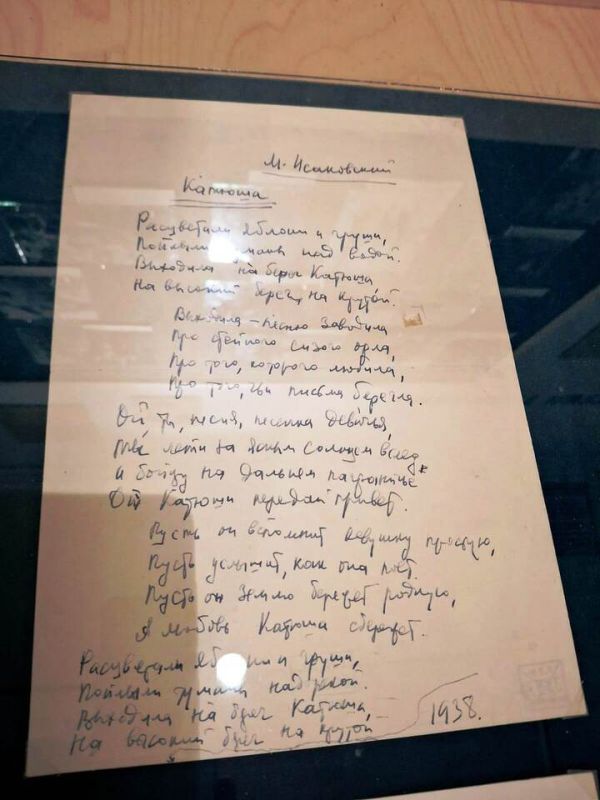 М. Исаковский
Катюша
Расцветали яблони и груши,
Поплыли туманы над водой.
Выходила на берег Катюша
На высокий берег, на крутой.
Выходила – песню заводила
Про степного сизого орла,
Про того, которого любила,
Про того, чьи письма берегла.
Ой ты, песня, песенка девичья,
Ты лети за ясным солнцем вслед
И бойцу на дальнем пограничье
От Катюши передай привет.
Пусть он вспомнит девушку простую,
Пусть услышит, как она поет.
Пусть он землю бережет родную,
А любовь Катюша сбережет.
Расцветали яблони и груши,
Поплыли туманы над рекой.
Выходила на берег Катюша,
На высокий берег на крутой
1938.